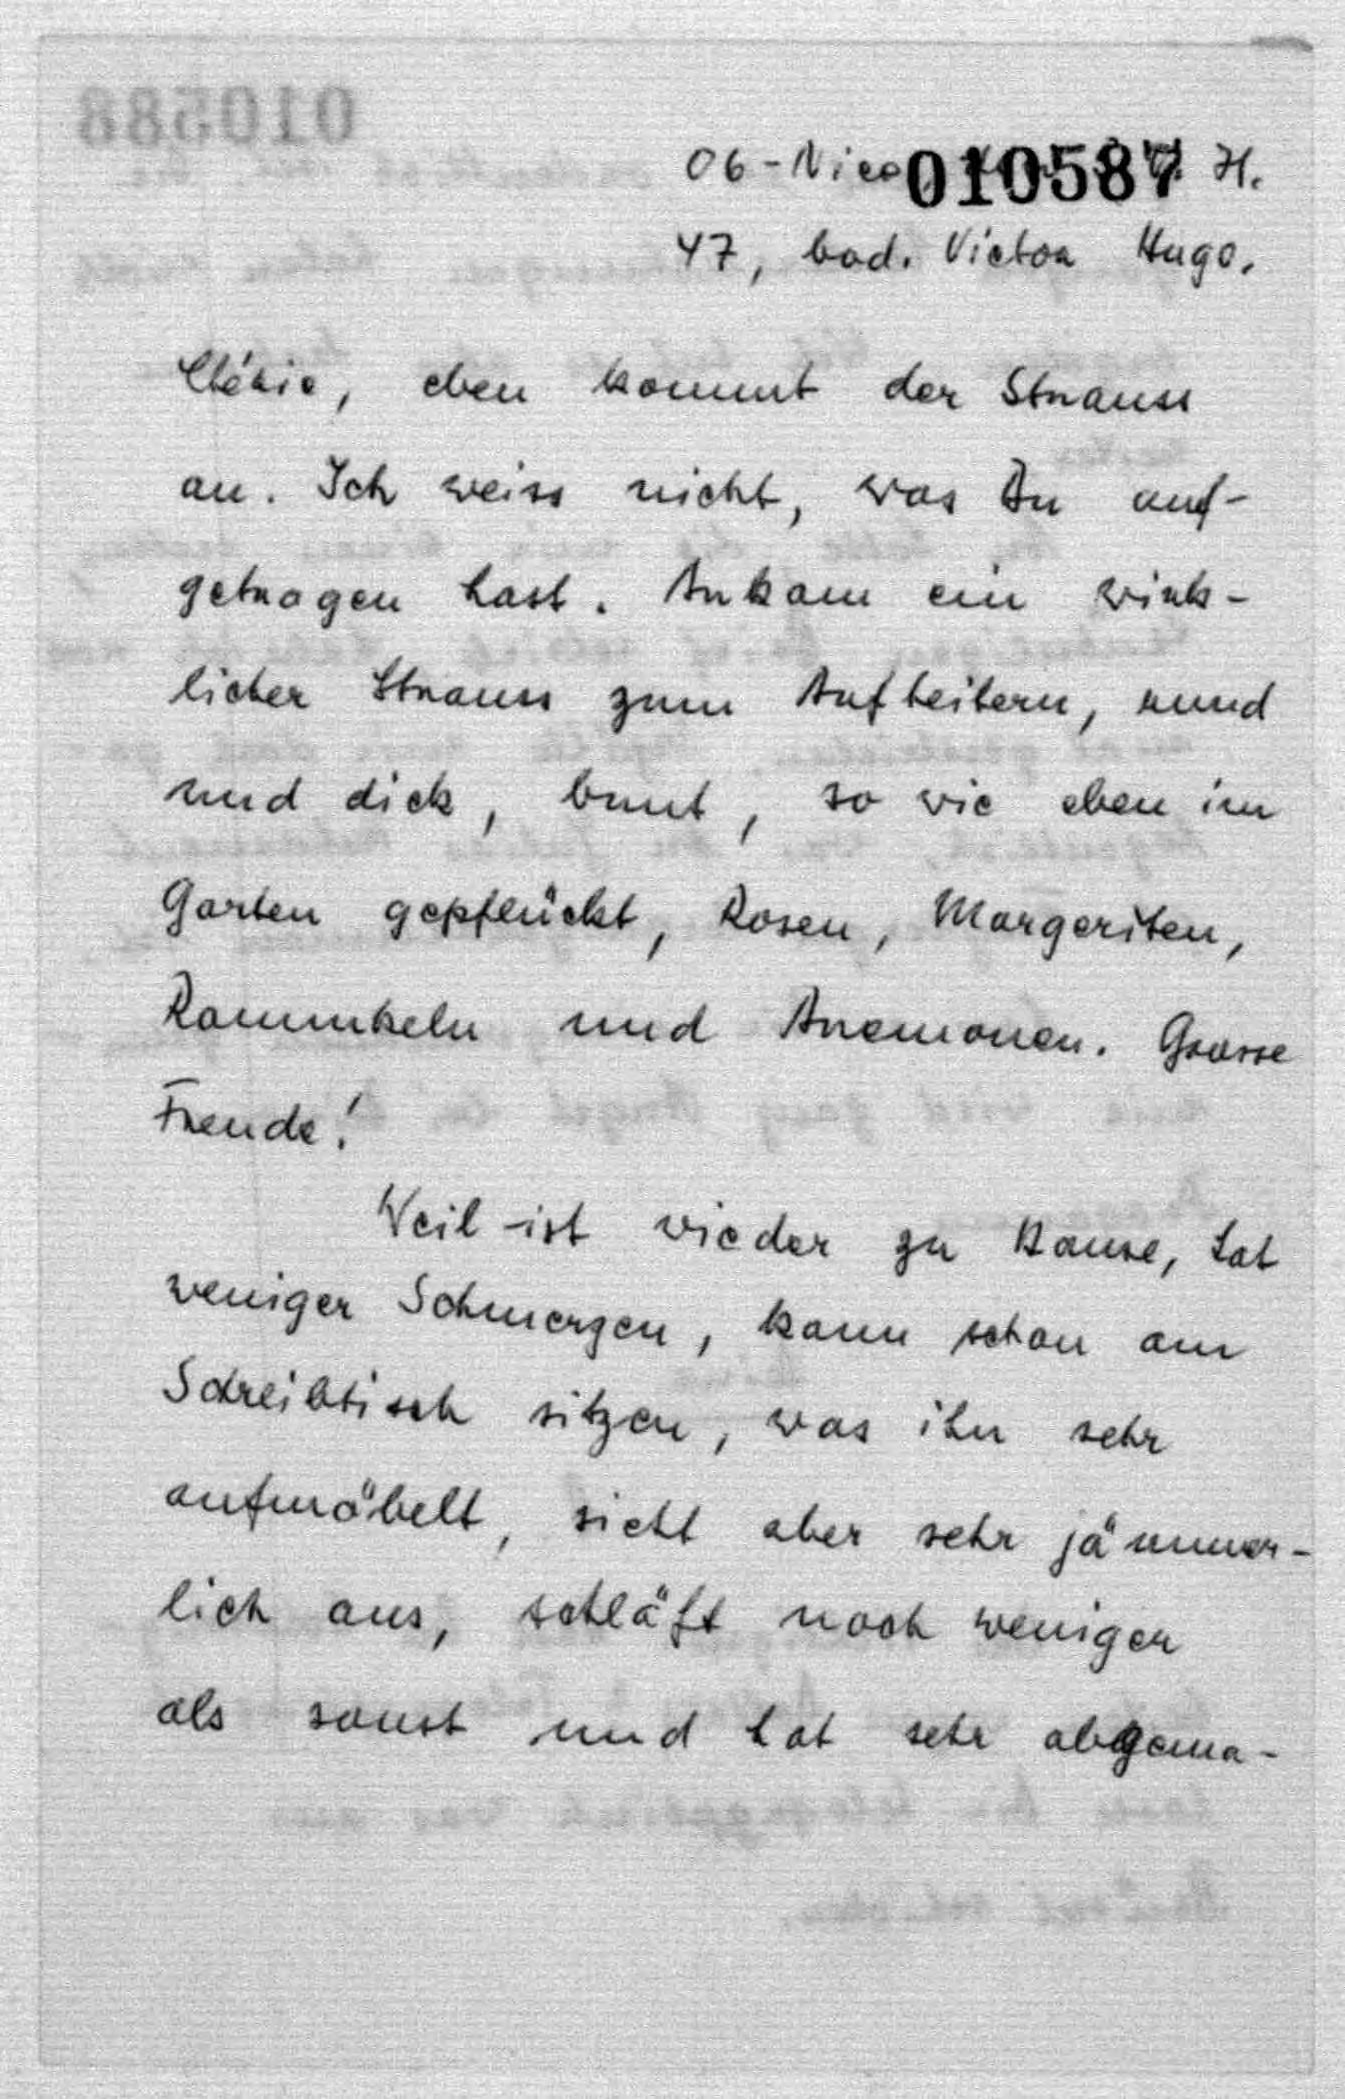 010588
06-Nice 010587 H.
47, bvd. Victor Hugo.
Chérie, eben kommt der Strauss
an. Ich weiss nicht, was Du auf-
getragen hast. Ankam ein wirk-
licher Strauss zum Aufheitern, rund
und dick, bunt, so wie eben im
Garten gepflückt, Rosen, Margeriten,
Rannunkeln und Anemonen. Grosse
Freude!
Weil ist wieder zu Hause, hat
weniger Schmerzen, kann schon am
Schreibtisch sitzen, was ihn sehr
aufmöbelt, sieht aber sehr jämmer-
lich aus, schläft noch weniger
als sonst und hat sehr abgema-